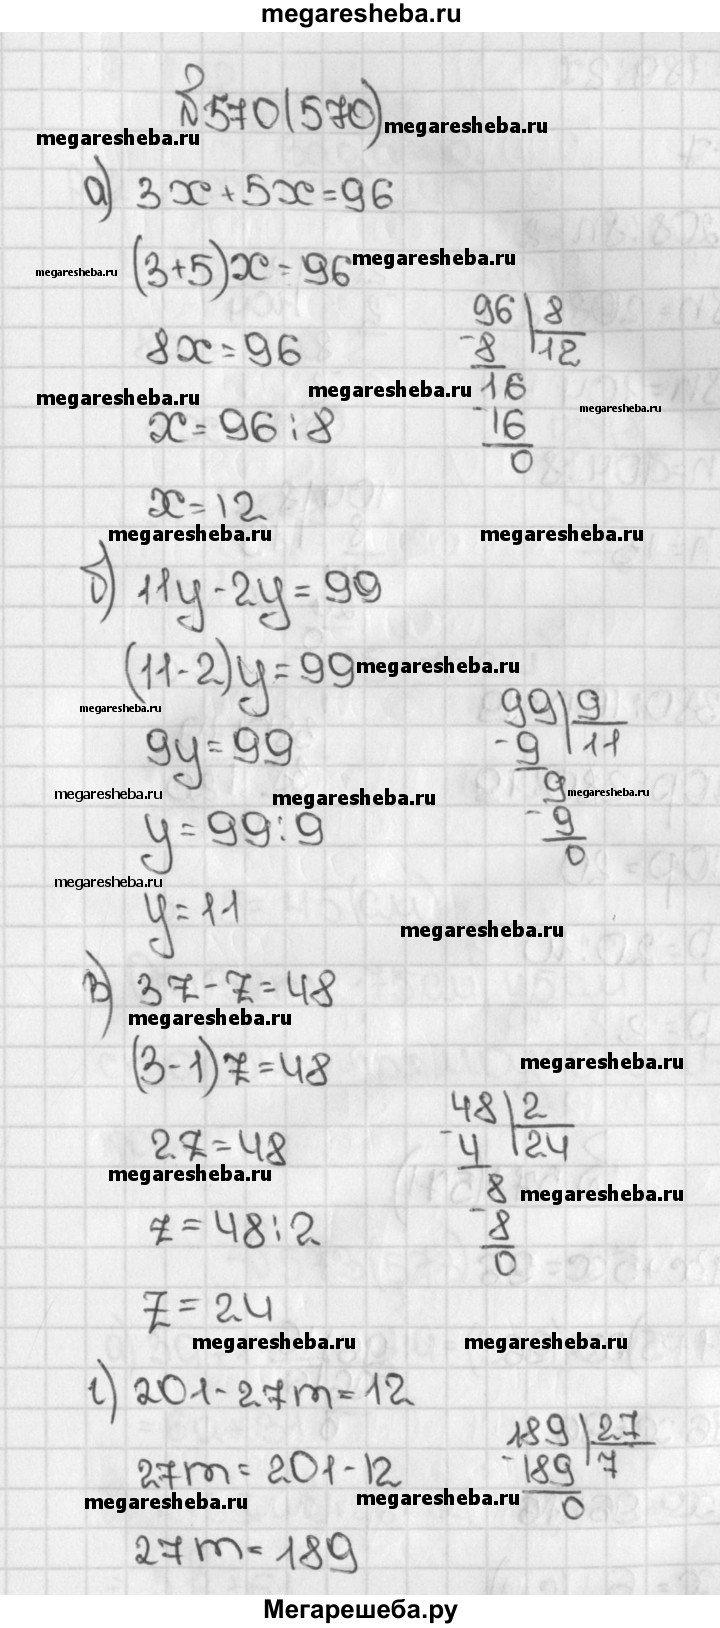 megaresheba.ru
№570(570)
megaresheba.ru megaresheba.ru
а) 3x+5x=96
(3+5)x=96
megaresheba.ru megaresheba.ru
8x=96
96 8
-8 12
16
-16
0
megaresheba.ru megaresheba.ru megaresheba.ru
x=96:8
x=12
megaresheba.ru megaresheba.ru
б) 11y-2y=99
(11-2)y=99
megaresheba.ru
megaresheba.ru
9y=99
99 9
-9 11
9
-9
0
megaresheba.ru megaresheba.ru megaresheba.ru
y=99:9
megaresheba.ru
y=11
megaresheba.ru
в) 3z-z=48
megaresheba.ru
(3-1)z=48
megaresheba.ru
2z=48
48 2
-4 24
8
-8
0
megaresheba.ru megaresheba.ru
z=48:2
z=24
megaresheba.ru megaresheba.ru
г) 201-27m=12
27m=201-12
189 27
-189 7
0
megaresheba.ru megaresheba.ru
27m=189
Мегарешеба.ру